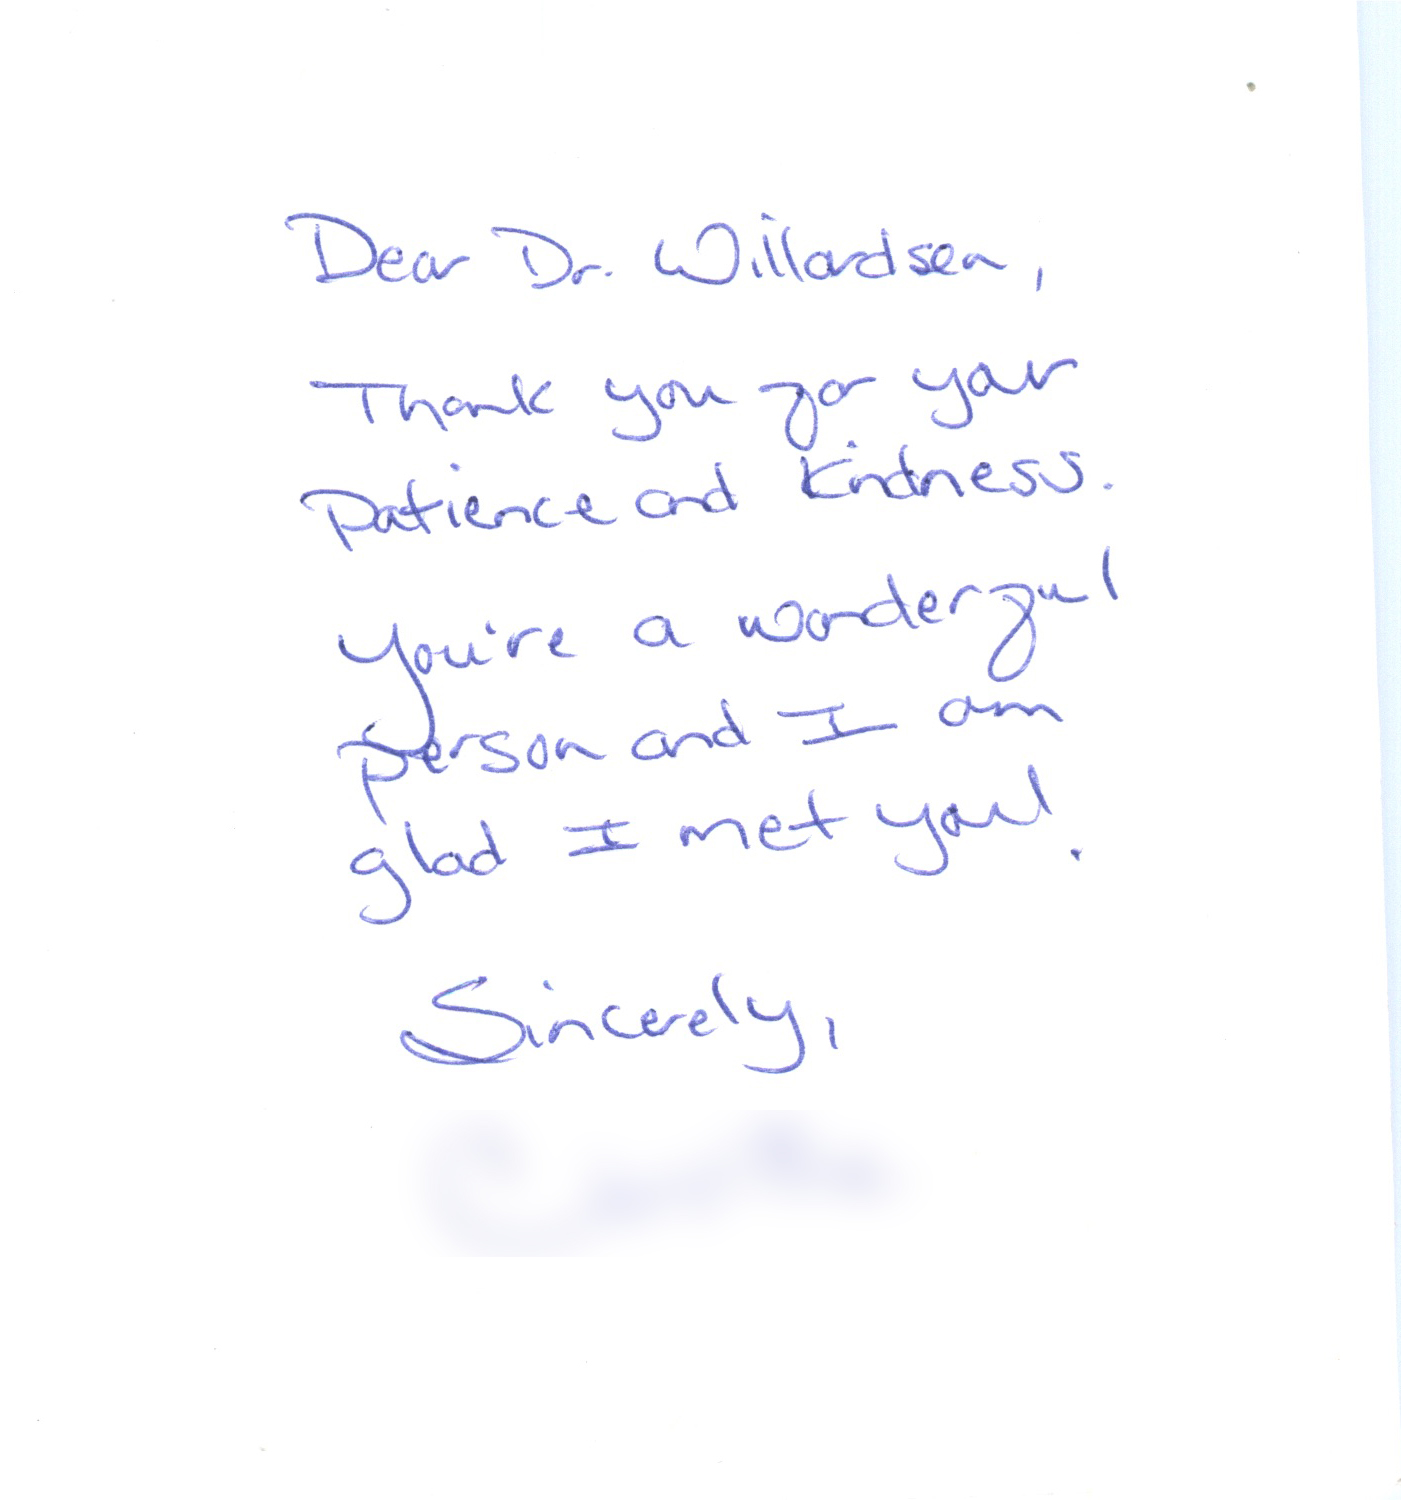 Dear Dr. Willardsen,
Thank you for your
Patience and Kindness.
You're a wonderful
person and I am
glad I met you!
Sincerely,